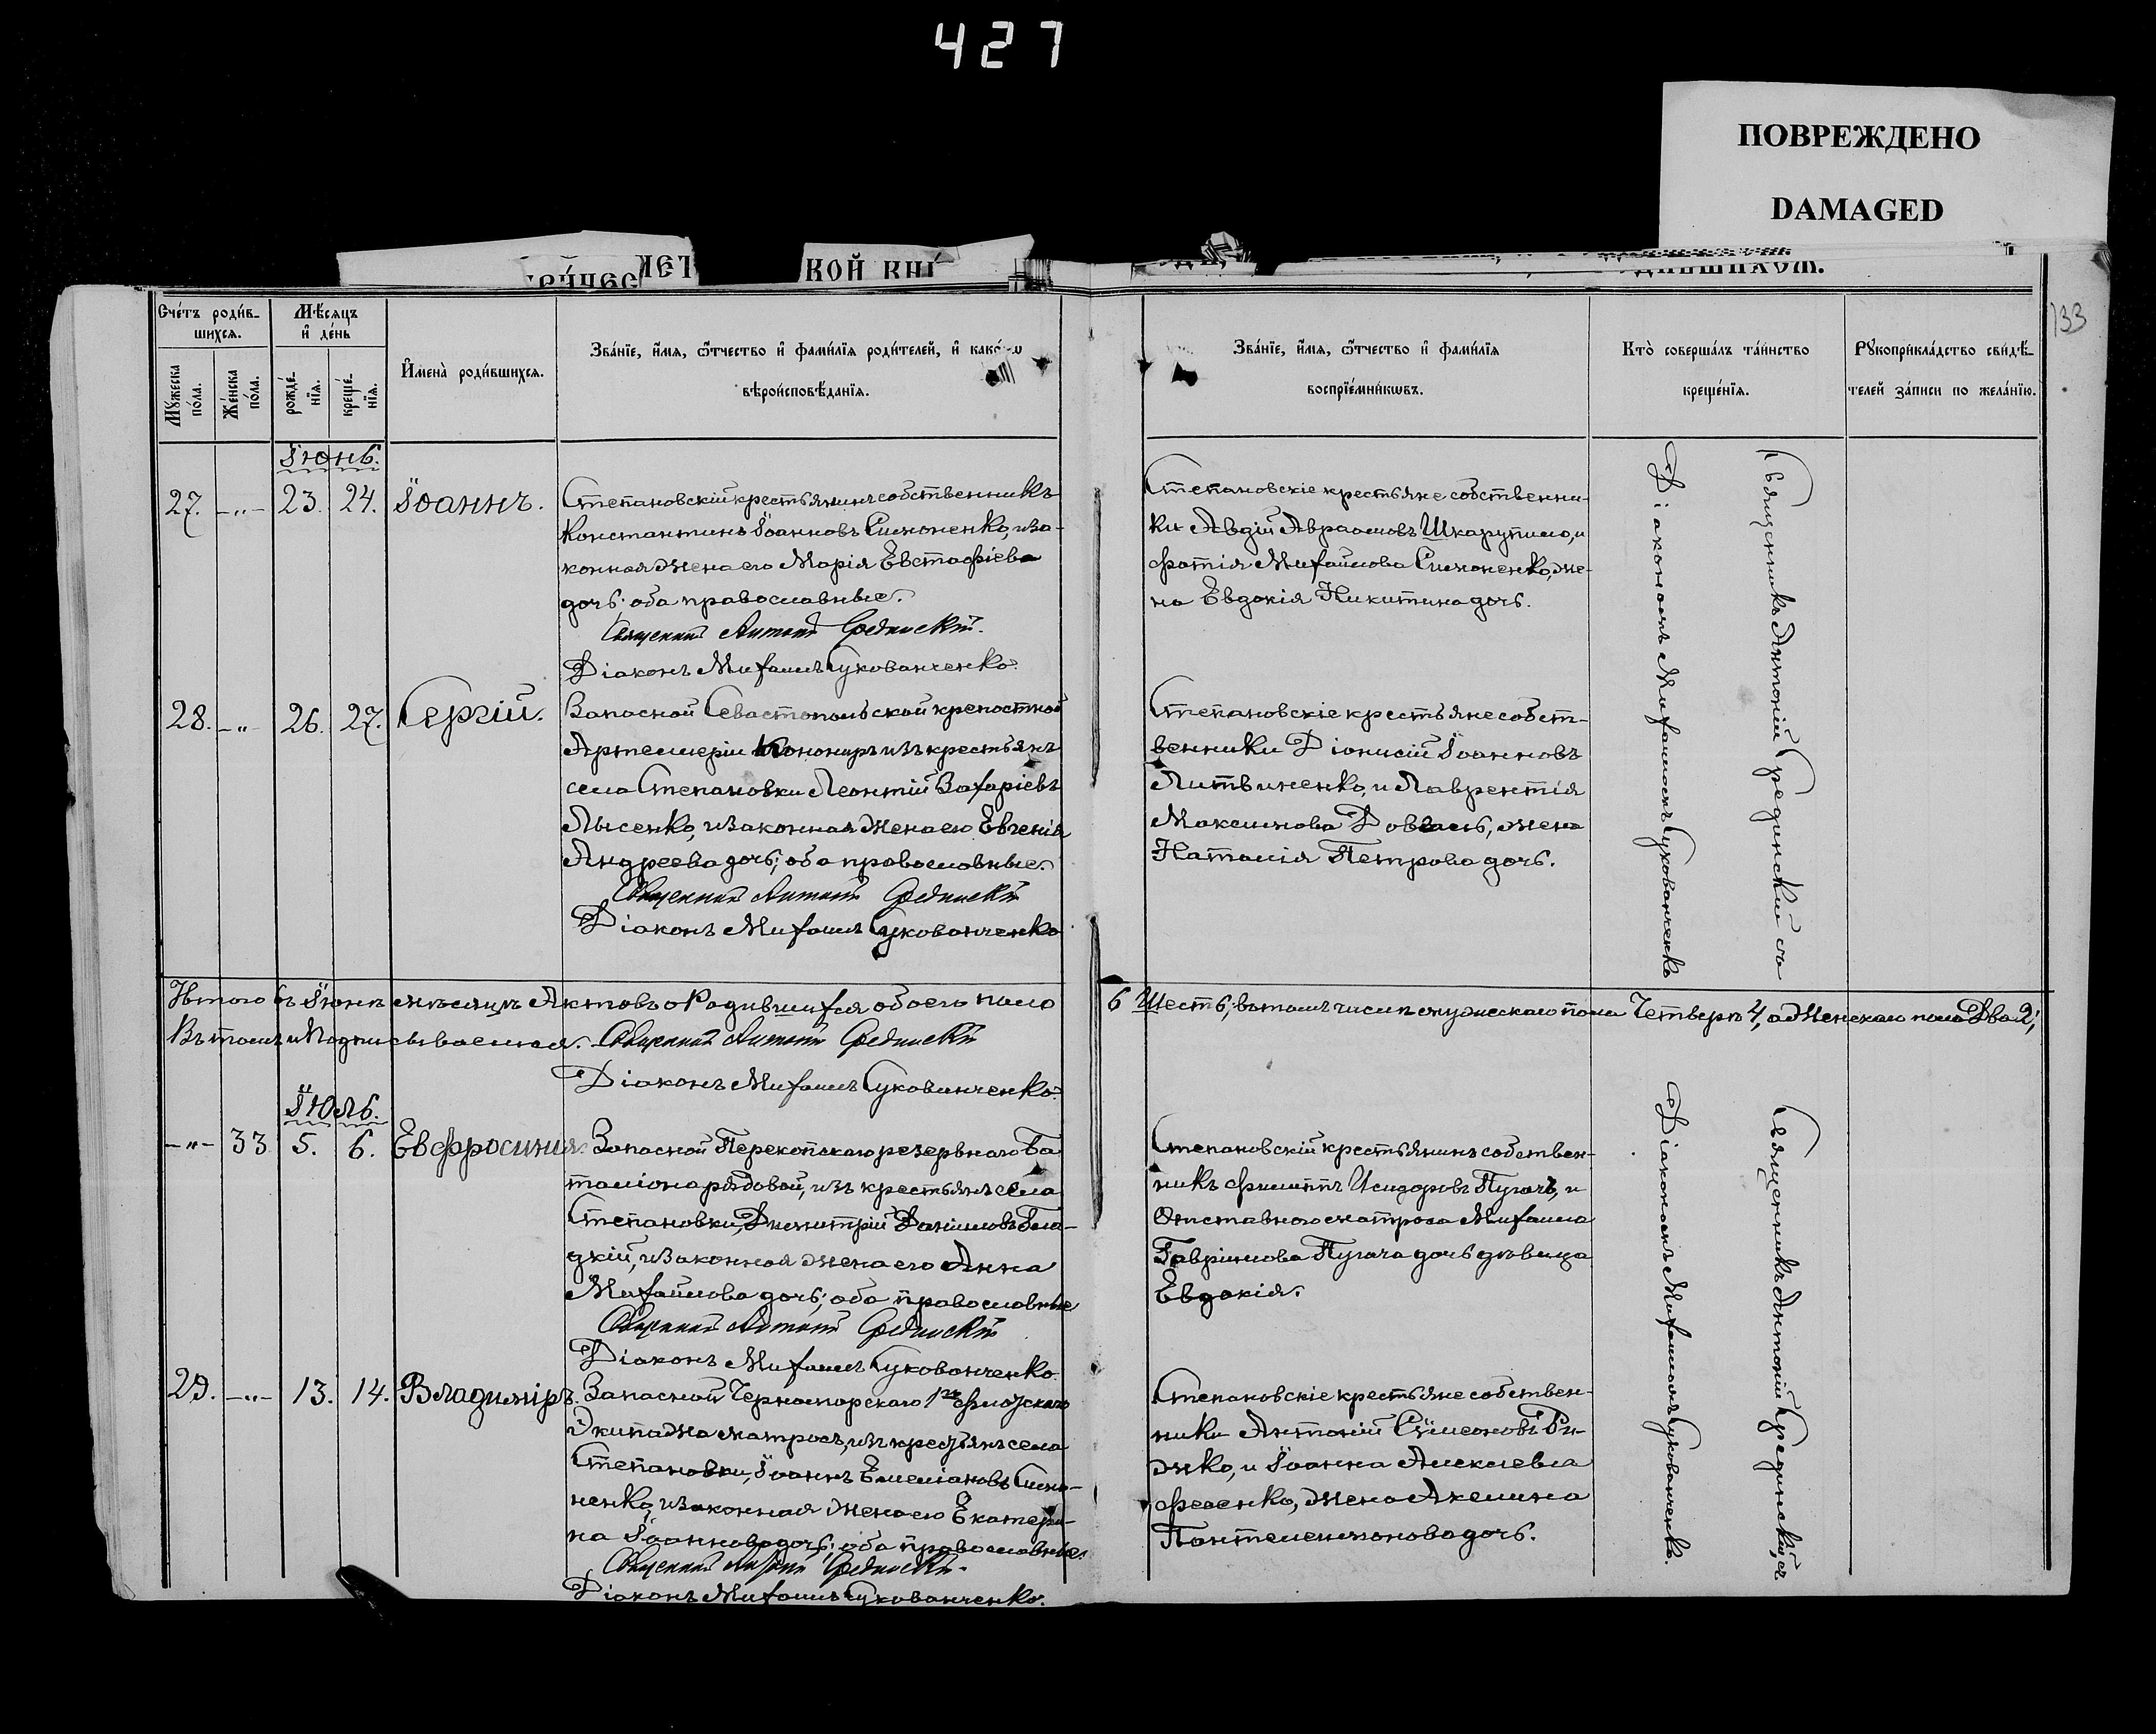 427
ПОВРЕЖДЕНО
DAMAGED
КОЙ КНИ
133
Счетъ родив-
шихся.
Мѣсяцъ
и день
Мужеска
пола.
Женска
пола.
рожде-
нія.
креще-
нія.
Имена родившихся.
Званіе, имя, отчество и фамилія родителей, и какого
вѣроисповѣданія.
Званіе, имя, отчество и фамилія
воспріемниковъ.
Кто совершалъ таинство
крещенія.
Рукоприкладство свидѣ-
телей записи по желанію.
Іюнь.
27. -"- 23. 24. Іоаннъ.
Степановскій крестьянинъ собственникъ
Константинъ Іоанновъ Симоненко, и за-
конная жена его Марія Евстафіева
дочь; оба православные.
Священникъ Антоній Срединскій.
Діаконъ Михаилъ Сукованченко.
Степановскіе крестьяне собственни-
ки Авдій Авраамовъ Шкарупило, и
Фотія Михайлова Симоненко, же-
на Евдокія Никитина дочь.
Священникъ Антоній Срединскій съ
Діакономъ Михаиломъ Сукованченко
28. -"- 26. 27. Сергій.
Запасной Севастопольской крепостной
Артелеріи Конониръ изъ крестьянъ
села Степановки Леонтій Захаріевъ
Лысенко, и законная жена его Евгенія
Андреева дочь; оба православные.
Священникъ Антоній Срединскій
Діаконъ Михаилъ Сукованченко
Степановскіе крестьяне собст-
венники Діонисій Іоанновъ
Литвиненко, и Лаврентія
Максимова Довгаль, жена
Наталія Петрова дочь.
Итого въ Іюнѣ мѣсяцѣ Актовъ о Родившихся обоего пола 6 Шесть; въ томъ числѣ мужескаго пола Четверо 4, а Женскаго пола Два 2;
Въ томъ и Подписываемся. Священникъ Антоній Срединскій
Діаконъ Михаилъ Сукованченко.
Іюль.
-"- 33 5. 6. Евфросинія.
Запасной Перекопскаго резервнаго Ба-
таліона рядовой, изъ крестьянъ села
Степановки, Димитрій Даніиловъ Гла-
дкій, и законная жена его Анна
Михайлова дочь; оба православные
Священникъ Антоній Срединскій
Діаконъ Михаилъ Сукованченко.
Степановскій крестьянинъ собствен-
никъ Филиппъ Исидоровъ Пугачъ, и
Отставного матроса Михаила
Гавріилова Пугача дочь дѣвица
Евдокія.
Священникъ Антоній Срединскій, съ
Діакономъ Михаиломъ Сукованченко.
29. -"- 13. 14. Владиміръ.
Запасной Черноморскаго 1го флотскаго
Экипажа матросъ, изъ крестьянъ села
Степановки, Іоаннъ Емеліановъ Симо-
ненко, и законная жена его Екатери-
на Іоаннова дочь; оба православные.
Священникъ Антоній Срединскій.
Діаконъ Михаилъ Сукованченко.
Степановскіе крестьяне собствен-
ники Антоній Сѵмеоновъ
и Іоанна Алексіева
жена Акелина
Пантелеимонова дочь.